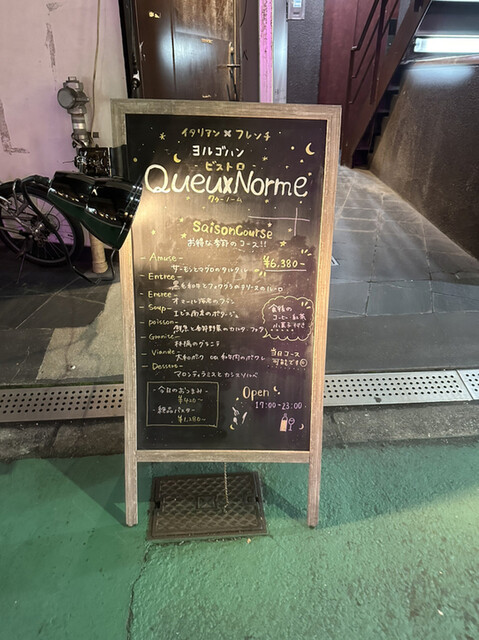 イタリアン × フレンチ
ヨルゴハン
ビストロ
QueuxNorme
クゥーノーム
SaisonCourse
お特な季節のコース!!
¥6.380-
- Amuse -
サーモンとマグロのタルタル
- Entree -
黒毛和牛とフォワグラの
- Entree -
オマール海老のフラン
- Soup -
エビス南京のポタージュ
- poisson -
鮮魚と春野菜の
- Granite -
林檎のグラニテ
- Viande -
大和ポーク or 和牛肉のポワレ
- Dessert -
マロンティラミスとカシスソルベ
食後の
コーヒー 紅茶
小菓子付き
当日コース
可能です
- 今日のおつまみ -
¥420~
- 絶品パスタ -
¥1,280~
Open
17:00-23:00